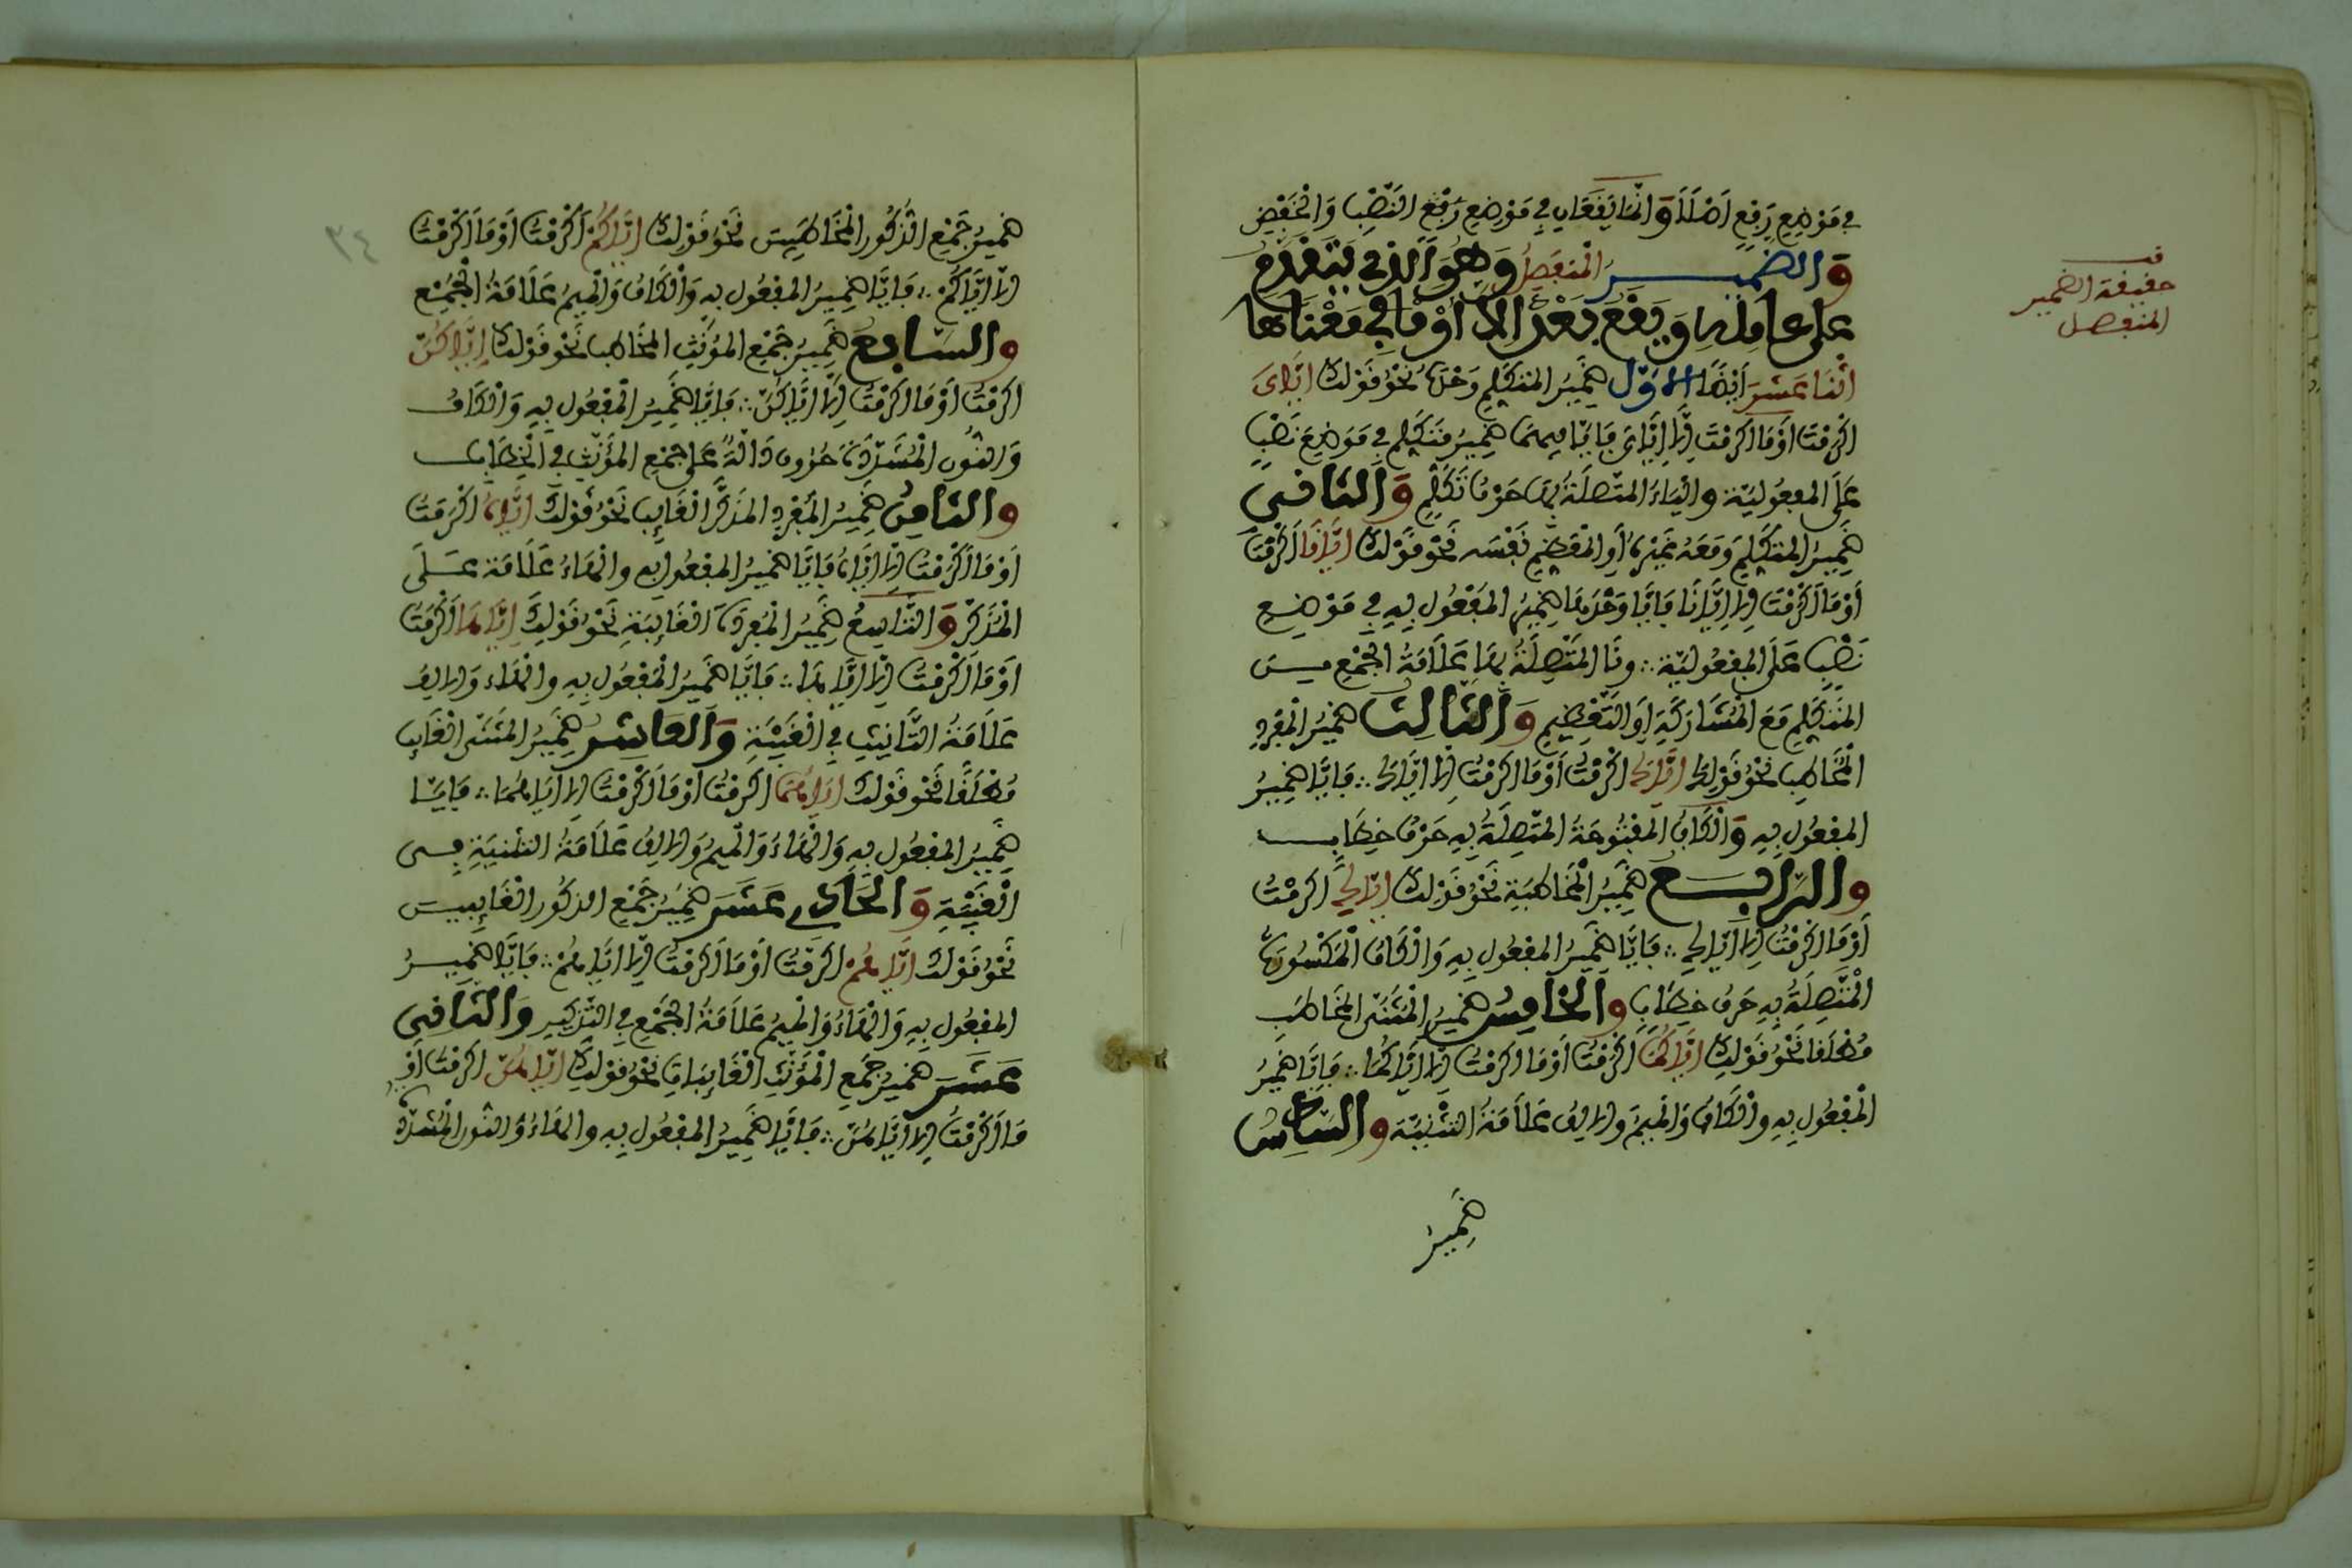 في موضع رفع اصلا وانما يقعان في موضع رفع النصب والخفض
والضمير المنفصل وهو الذي يتقدم
على عامله ويقع بعد الا او ما في معناها
اثنا عشر ايضا الاول ضمير المتكلم وحده نحو قولك اياي
اكرمت او ما اكرمت الا اياي فايا فيهما ضمير متكلم في موضع نصب
على المفعولية والياء المتصلة بها حرف تكلم والثاني
ضمير المتكلم ومعه غيره او المعظم نفسه نحو قولك ايانا اكرمت
او ما اكرمت الا ايانا فايا وحدها ضمير المفعول به في موضع
نصب على المفعولية ونا المتصلة بها علامة الجمع من
المتكلم مع المشاركة او التعظيم والثالث ضمير المفرد
المخاطب نحو قولك اياك اكرمت او ما اكرمت الا اياك فايا ضمير
المفعول به والكاف المفتوحة المتصلة به حرف خطاب
والرابع ضمير المخاطبة نحو قولك اياك اكرمت
او ما اكرمت الا اياك فايا ضمير المفعول به والكاف المكسورة
المتصلة به حرف خطاب والخامس ضمير المثنى المخاطب
مطلقا نحو قولك اياكما اكرمت او ما اكرمت الا اياكما فايا ضمير
المفعول به والكاف والميم والالف علامة التثنية والسادس
ضمير
في
حقيقة الضمير
المنفصل
٢٤
ضمير جمع الذكور المخاطبين نحو قولك اياكم اكرمت او ما اكرمت
الا اياكم فايا ضمير المفعول به والكاف والميم علامة الجمع
والسابع ضمير جمع المؤنث المخاطب نحو قولك اياكن
اكرمت او ما اكرمت الا اياكن فايا ضمير المفعول به والكاف
والنون المشددة حروف دالة على جمع المؤنث في الخطاب
والثامن ضمير المفرد المذكر الغايب نحو قولك اياه اكرمت
او ما اكرمت الا اياه فايا ضمير المفعول به والهاء علامة على
المذكر والتاسع ضمير المفردة الغايبة نحو قولك اياها اكرمت
او ما اكرمت الا اياها فايا ضمير المفعول به والهاء والالف
علامة التانيث في الغيبة والعاشر ضمير المثنى الغايب
مطلقا نحو قولك اياهما اكرمت او ما اكرمت الا اياهما فايا
ضمير المفعول به والهاء والميم والالف علامة التثنية في
الغيبة والحادي عشر ضمير جمع الذكور الغايبين
نحو قولك اياهم اكرمت او ما اكرمت الا اياهم فايا ضمير
المفعول به والهاء والميم علامة الجمع في التذكير والثاني
عشر ضمير جمع المؤنث الغايبات نحو قولك اياهن اكرمت او
ما اكرمت الا اياهن فايا ضمير المفعول به والهاء والنون المشددة